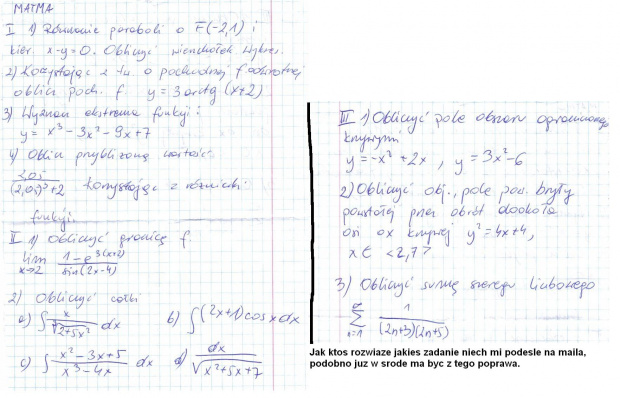 MATMA
I 1) Równanie paraboli o F(-2,1) i
kier. x-y=0. Obliczyć wierzchołek
2) Korzystając z tw. o pochodnej f. odwrotnej
oblicz poch. f. y = 3 arctg (x+2)
3) Wyznacz ekstrema funkcji:
y = x³ - 3x² - 9x + 7
4) Oblicz przybliżoną wartość
2,01 / (2,01)³+2 korzystając z różniczki
funkcji.
II 1) Obliczyć granicę f.
lim x→2 1-e^3(x+2) / sin(2x-4)
2) Obliczyć całki
a) ∫ x / √2+5x² dx b) ∫(2x+1)cosx dx
c) ∫ -x²-3x+5 / x³-4x dx d) ∫ dx / √x²+5x+7
III 1) Obliczyć pole obszaru ograniczonego
krzywymi
y = -x² + 2x , y = 3x² - 6
2) Obliczyć obj., pole pow. bryły
powstałej przez obrót dookoła
osi ox krzywej y² = 4x+4,
x ∈ <2,7>
3) Obliczyć sumę szeregu liczbowego
∞ Σ n=1 1 / (2n+3)(2n+5)
Jak ktos rozwiaze jakies zadanie niech mi podesle na maila,
podobno juz w srode ma byc z tego poprawa.